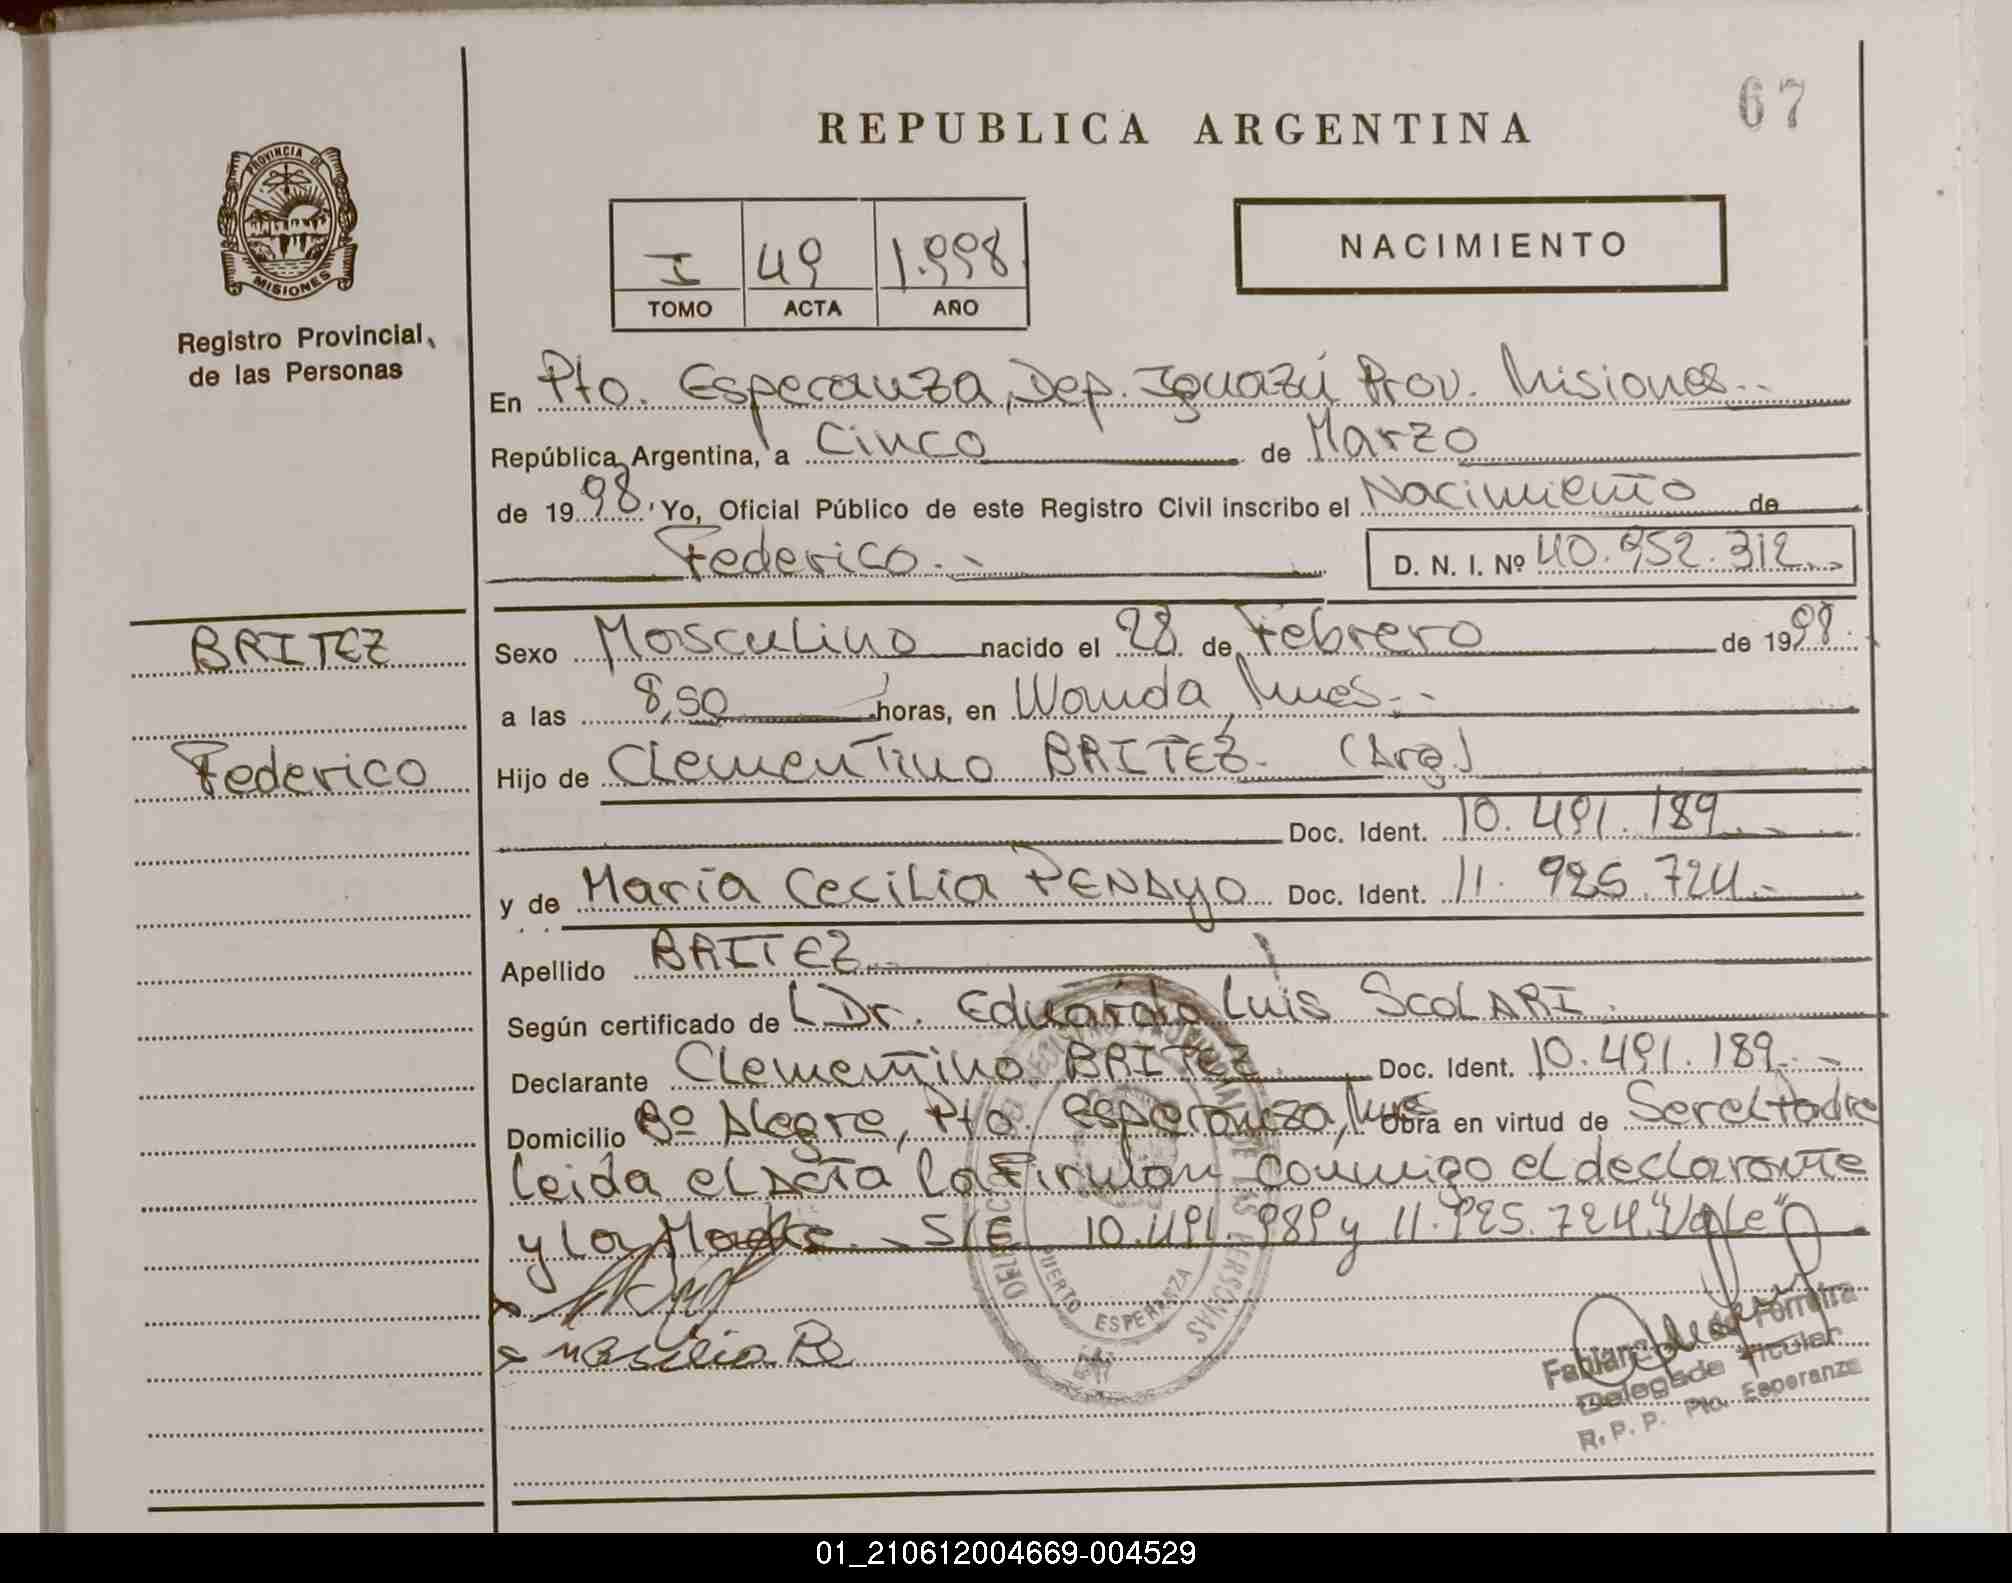 67
REPUBLICA ARGENTINA
PROVINCIA DE
MISIONES
Registro Provincial
de las Personas
I 49 1.998
TOMO ACTA AÑO
NACIMIENTO
En Pto. Esperanza, Dep. Iguazú Prov. Misiones..
República Argentina, a Cinco de Marzo
de 1998, Yo, Oficial Público de este Registro Civil inscribo el Nacimiento de
Federico.- D. N. I. Nº 40.952.312.-
BRITEZ
Federico
Sexo Masculino nacido el 28 de Febrero de 1998.
a las 8,50 horas, en Wanda, Mnes.-
Hijo de Clementino BRITEZ. (Arg)
Doc. Ident. 10.491.189.-
y de María Cecilia PENAYO Doc. Ident. 11.925.724.-
Apellido BRITEZ.-
Según certificado de Dr. Eduardo Luis SCOLARI.
Declarante Clementino BRITEZ. Doc. Ident. 10.491.189.-
Domicilio Bº Alegre, Pto. Esperanza, Mnes Obra en virtud de Ser el Padre
Leida el Acta la Firman conmigo el declarante
y la Madre.- S/E 10.491.989 y 11.925.724 "Vale"
PUERTO ESPERANZA
DE LAS PERSONAS
Ferreira
Delegada Titular
R. P. P. Pto. Esperanza
01_210612004669-004529